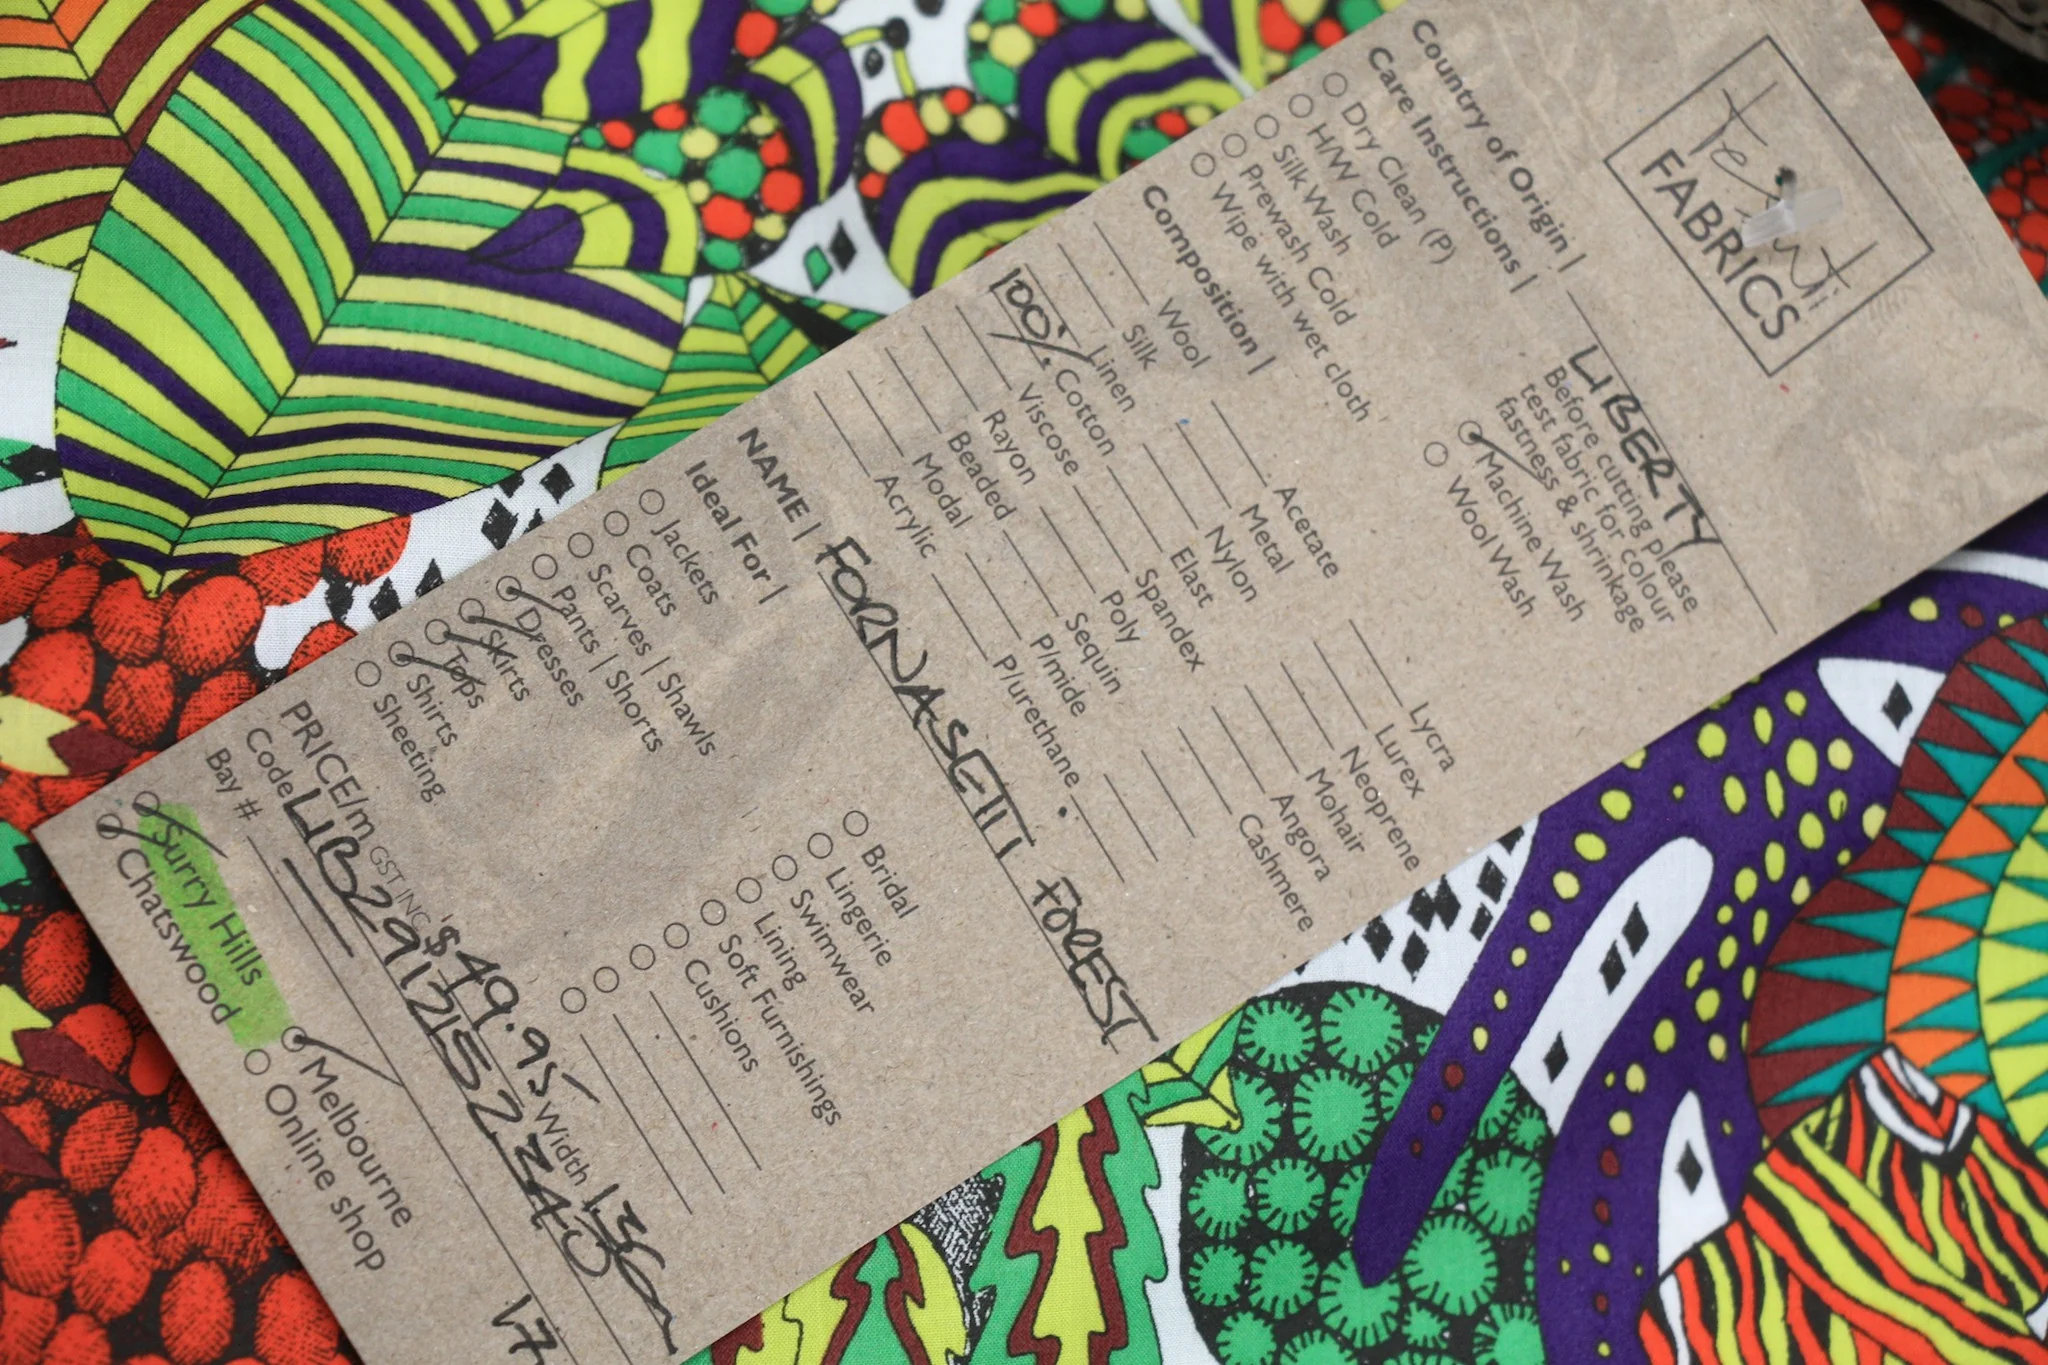 Tessuti
FABRICS
Country of Origin | LIBERTY
Care Instructions | Before cutting please
test fabric for colour
fastness & shrinkage
Dry Clean (P) Machine Wash
H/W Cold Wool Wash
Silk Wash
Prewash Cold
Wipe with wet cloth
Composition |
Wool Acetate Lycra
Silk Metal Lurex
Linen Nylon Neoprene
100% Cotton Elast Mohair
Viscose Spandex Angora
Rayon Poly Cashmere
Beaded Sequin
Modal P/mide
Acrylic P/urethane
NAME | FORNASETTI FOREST
Ideal For |
Jackets Bridal
Coats Lingerie
Scarves | Shawls Swimwear
Pants | Shorts Lining
Dresses Soft Furnishings
Skirts Cushions
Tops
Shirts
Sheeting
PRICE/m GST INC $49.95 Width
Code
Bay #
Surry Hills Melbourne
Chatswood Online shop